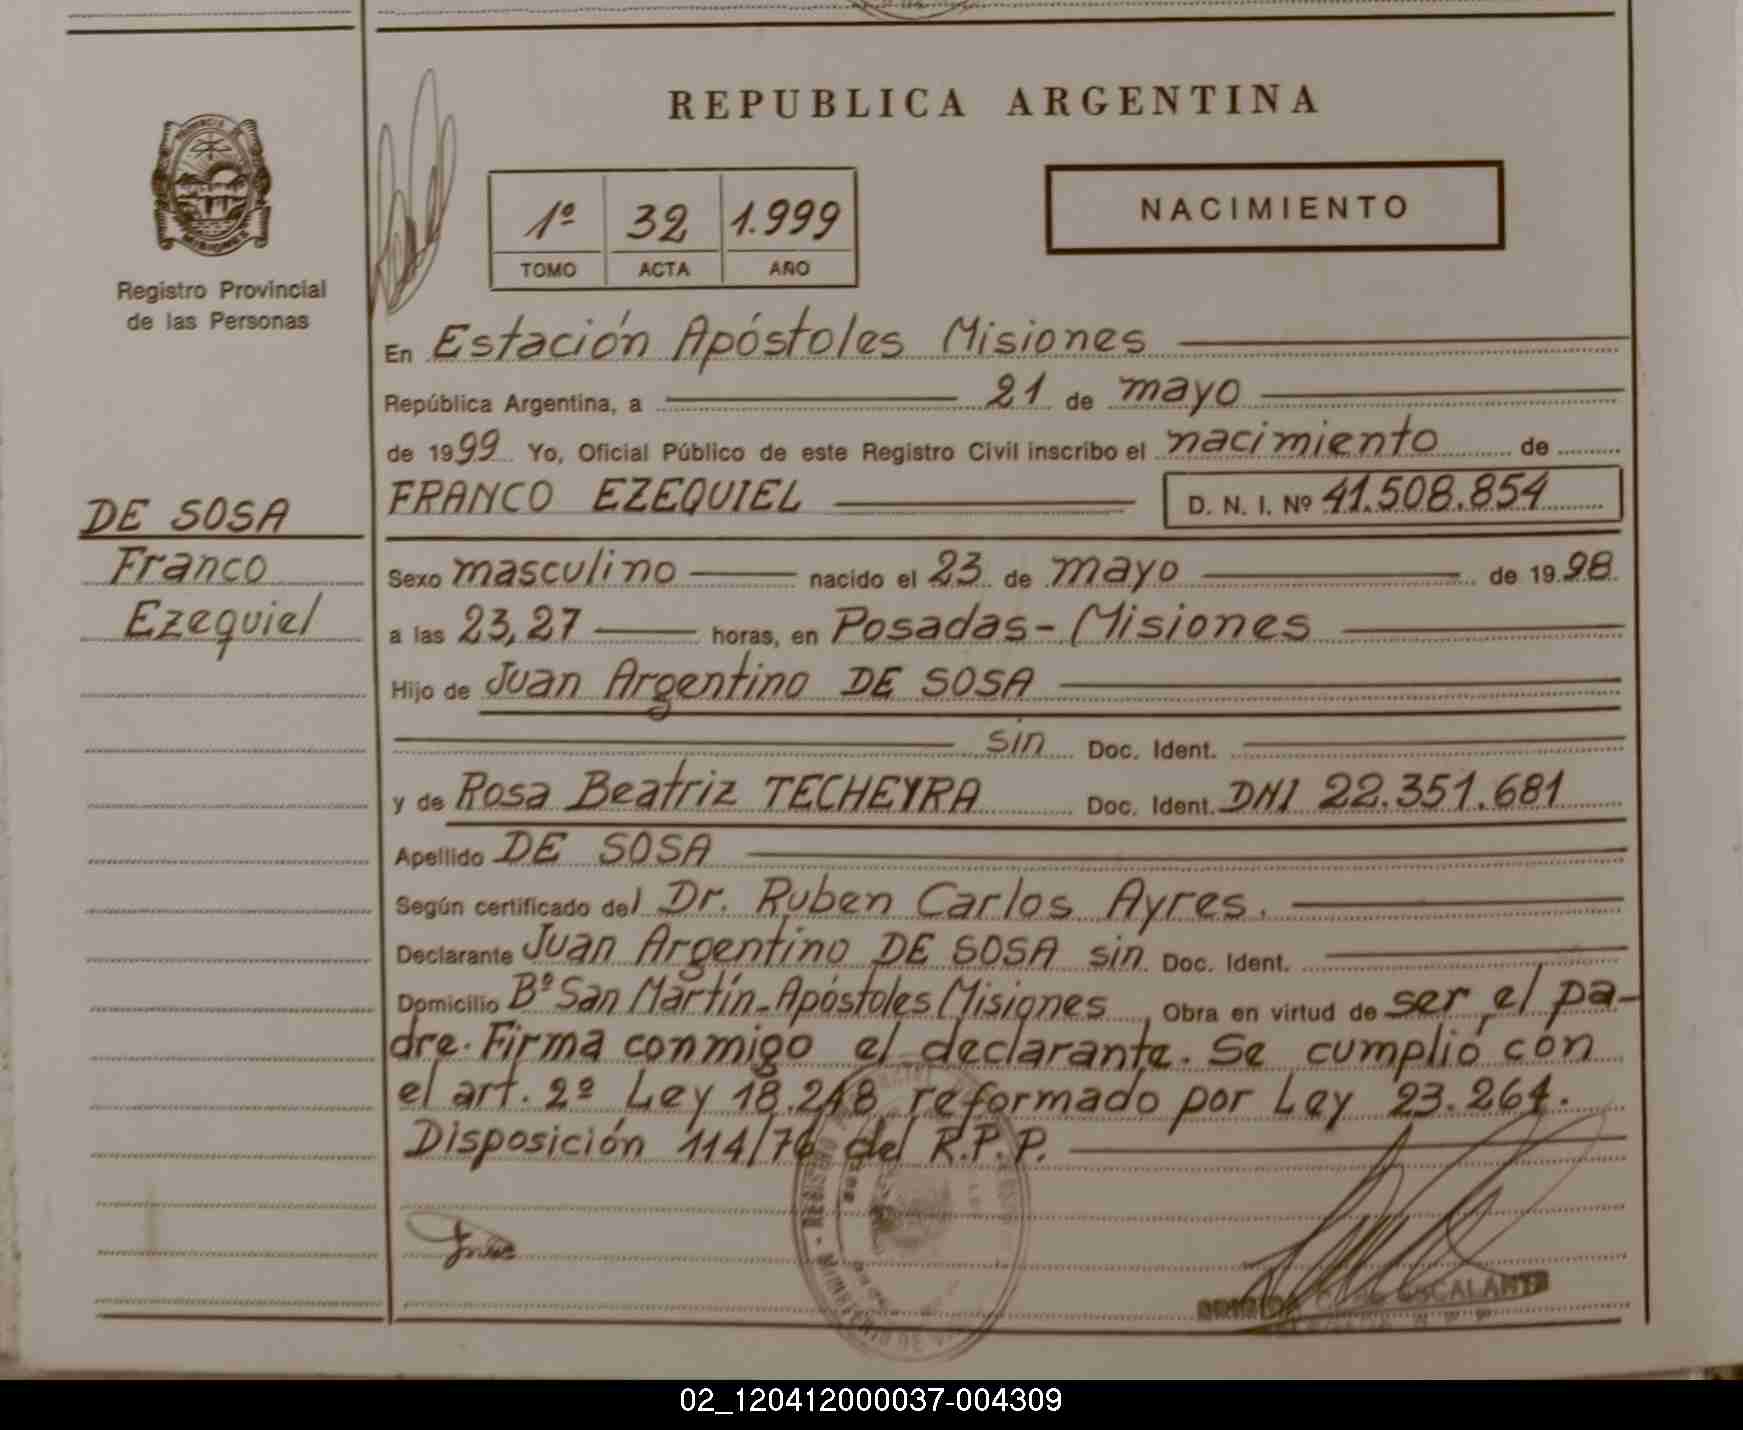 REPUBLICA ARGENTINA
PROVINCIA
MISIONES
Registro Provincial
de las Personas
1º 32 1.999
TOMO ACTA AÑO
NACIMIENTO
En Estación Apóstoles Misiones
República Argentina, a 21 de mayo
de 1999 Yo, Oficial Público de este Registro Civil inscribo el nacimiento de
FRANCO EZEQUIEL D. N. I. Nº 41.508.854
DE SOSA
Franco
Ezequiel
Sexo masculino nacido el 23 de mayo de 1998
a las 23,27 horas, en Posadas-Misiones
Hijo de Juan Argentino DE SOSA
sin Doc. Ident.
y de Rosa Beatriz TECHEYRA Doc. Ident. DNI 22.351.681
Apellido DE SOSA
Según certificado del Dr. Ruben Carlos Ayres.
Declarante Juan Argentino DE SOSA sin Doc. Ident.
Domicilio Bº San Martín-Apóstoles Misiones, Obra en virtud de ser el pa-
dre. Firma conmigo el declarante. Se cumplió con
el art. 2º Ley 18.248 reformado por Ley 23.264.
Disposición 114/76 del R.P.P.
REGISTRO
MINISTERIO DE
ESCALANTE
02_120412000037-004309